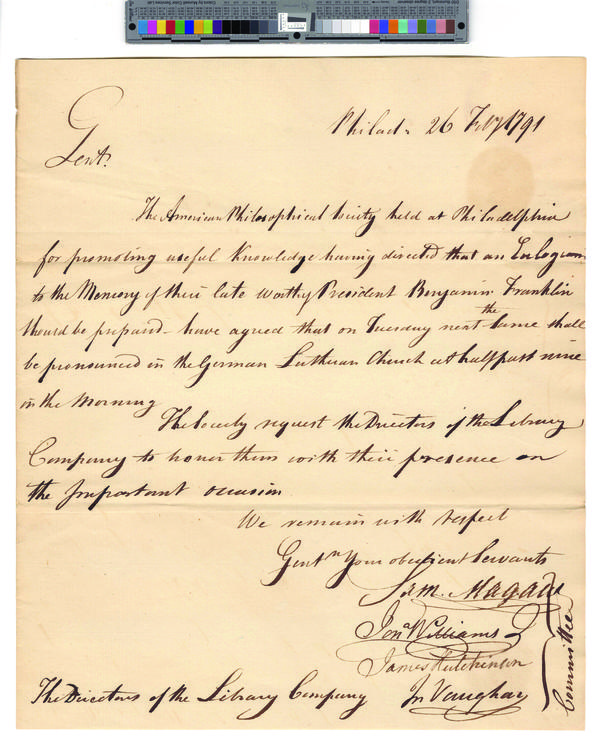 Philad.a 26 Feby 1791
Gent.n
The American Philosophical Society held at Philadelphia
for promoting useful Knowledge having directed that an Eulogium
to the Memory of their late worthy President Benjamin Franklin
should be prepared – have agreed that on Tuesday next the same shall
be pronounced in the German Lutheran Church at half past nine
in the Morning
The Society request the Directors of the Library
Company to honor them with their presence on
the Important occasion
We remain with respect
Gent.n Your obedient Servants
Sam. Magaw
Jon.a Williams
James Hutchinson
Jn Vaughan
Committee
The Directors of the Library Company